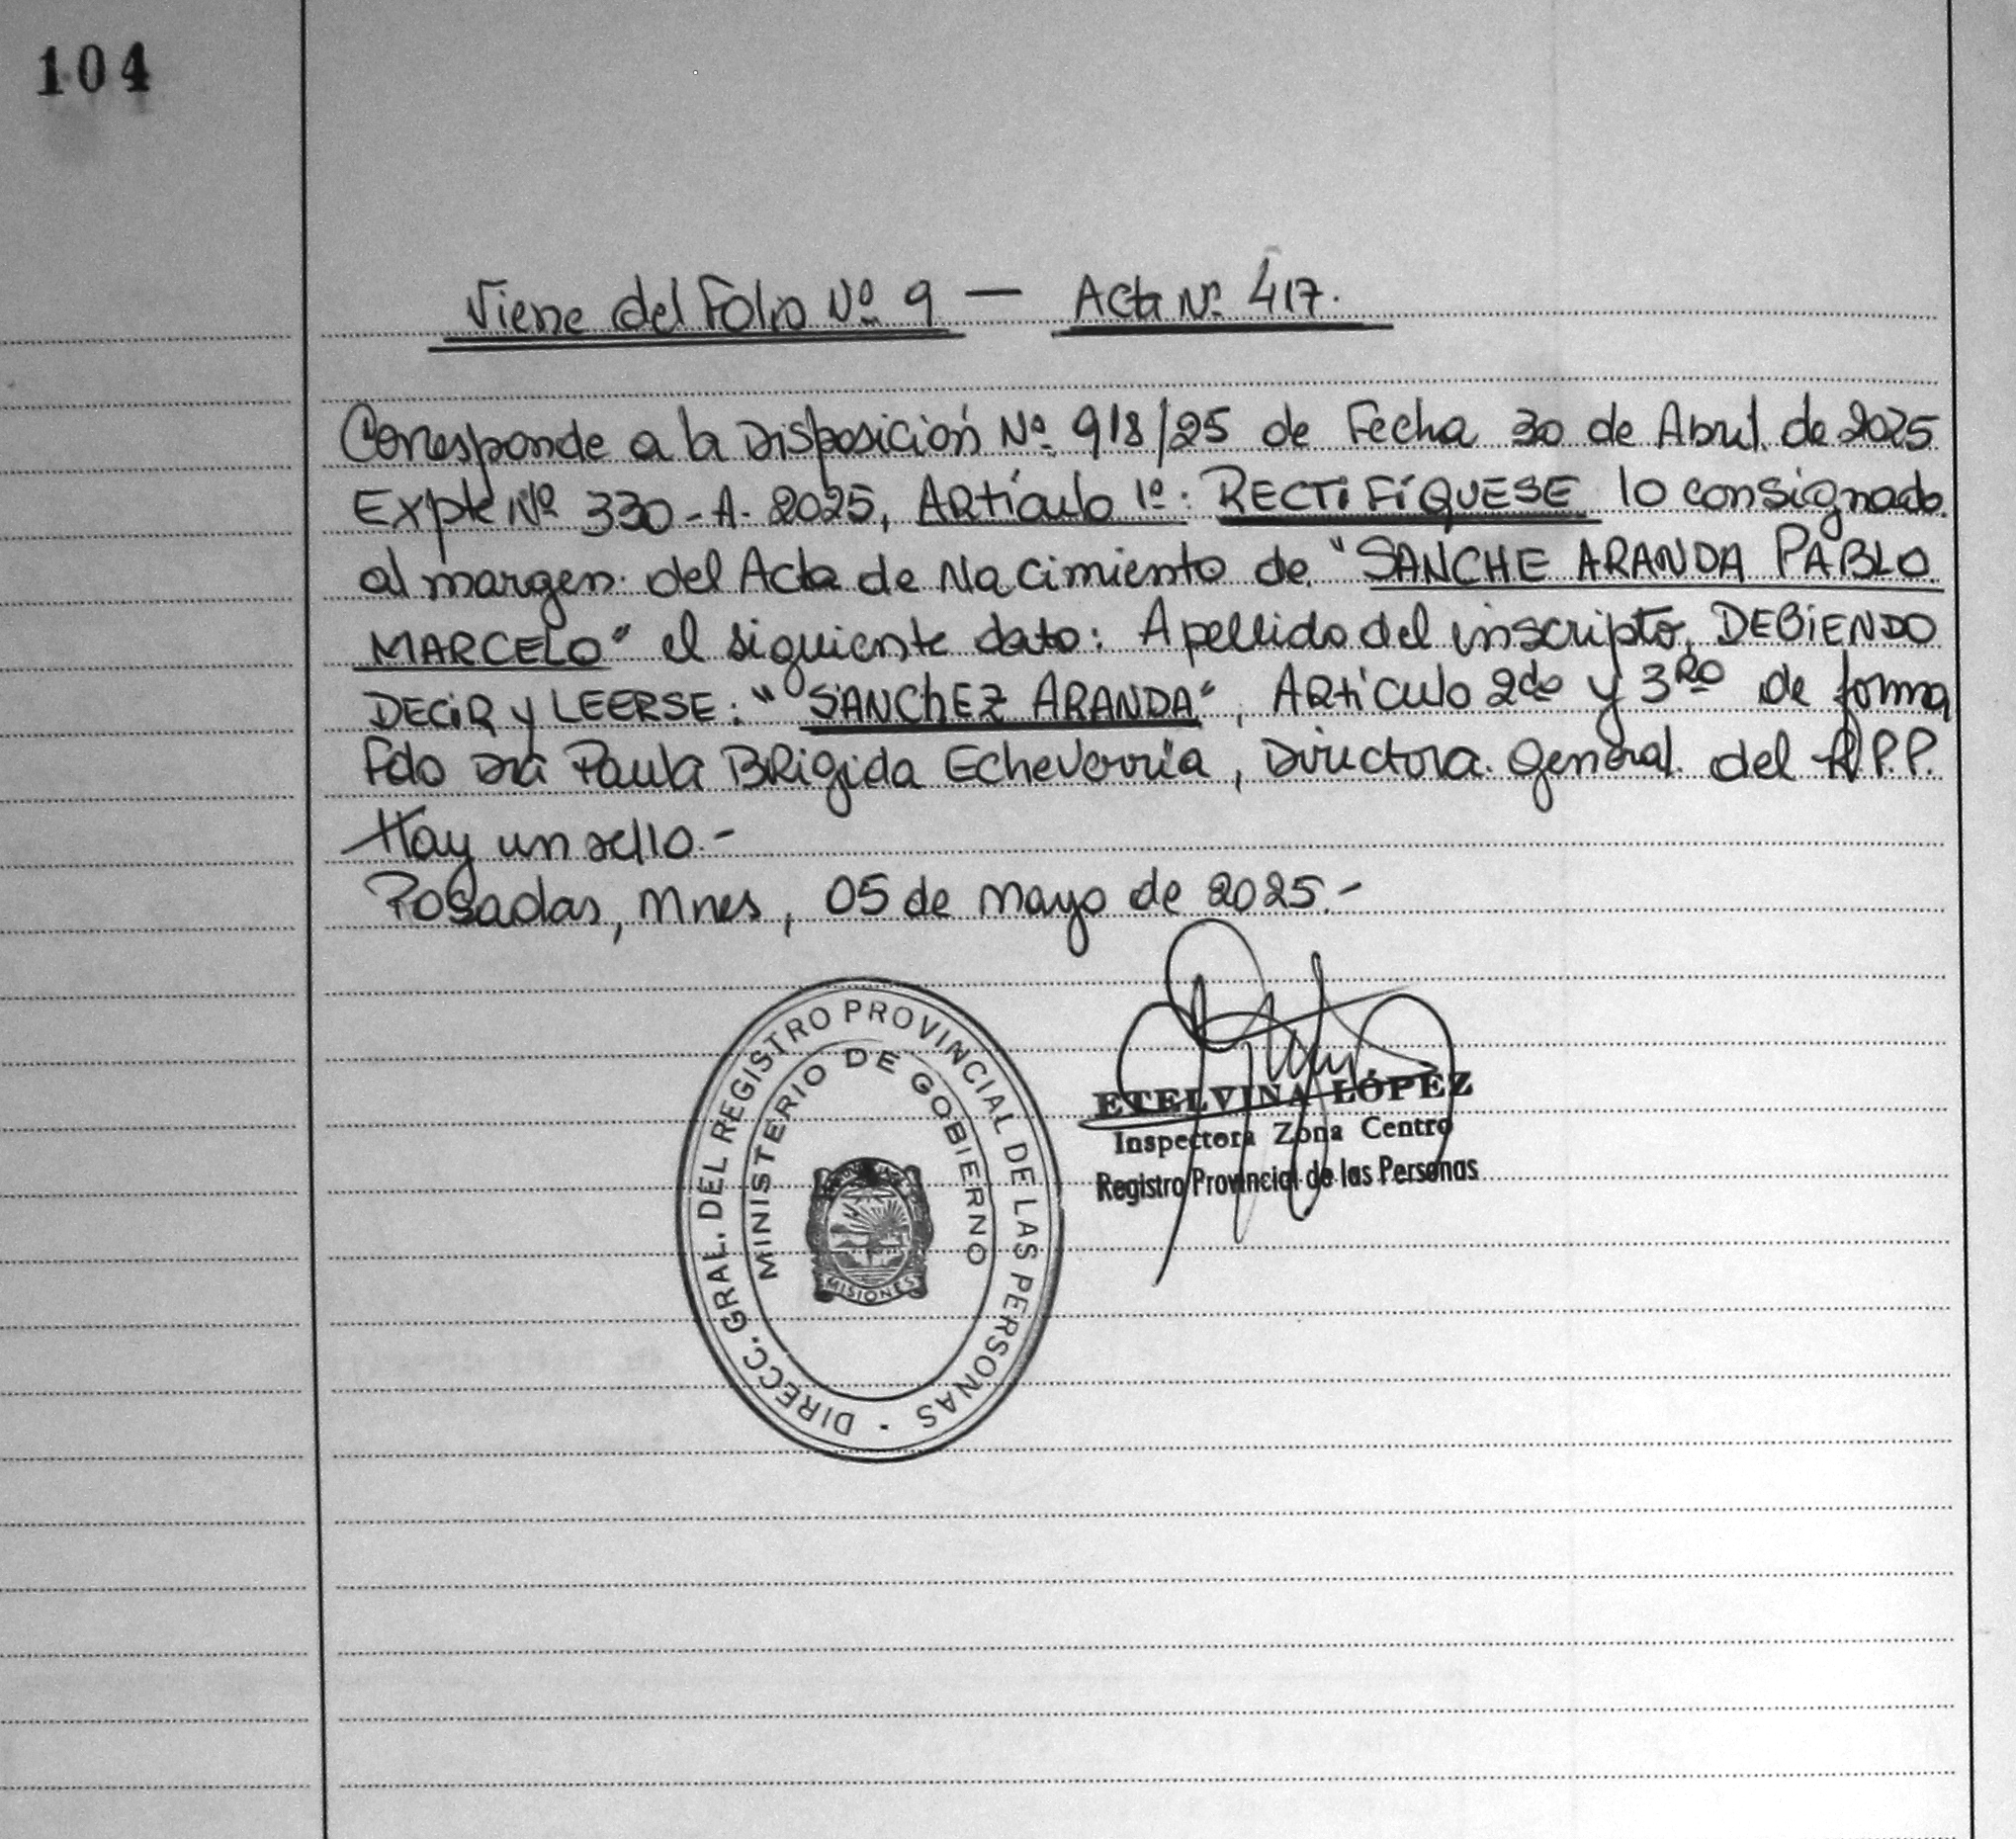 104
Viene del Folio Nº 9 — Acta Nº 417.
Corresponde a la Disposición Nº 918/25 de Fecha 30 de Abril de 2025
Expte Nº 330-A-2025, Artículo 1º: RECTIFÍQUESE lo consignado
al margen del Acta de Nacimiento de "SANCHE ARANDA PABLO
MARCELO" el siguiente dato: Apellido del inscripto, DEBIENDO
DECIR y LEERSE: "SANCHEZ ARANDA", Artículo 2do y 3RO de forma
Fdo Dra Paula Brigida Echeverría, Directora General del R.P.P.
Hay un sello.-
Posadas, Mnes, 05 de mayo de 2025.-
DIRECC. GRAL. DEL REGISTRO PROVINCIAL DE LAS PERSONAS
MINISTERIO DE GOBIERNO
MISIONES
ETELVINA LÓPEZ
Inspectora Zona Centro
Registro Provincial de las Personas